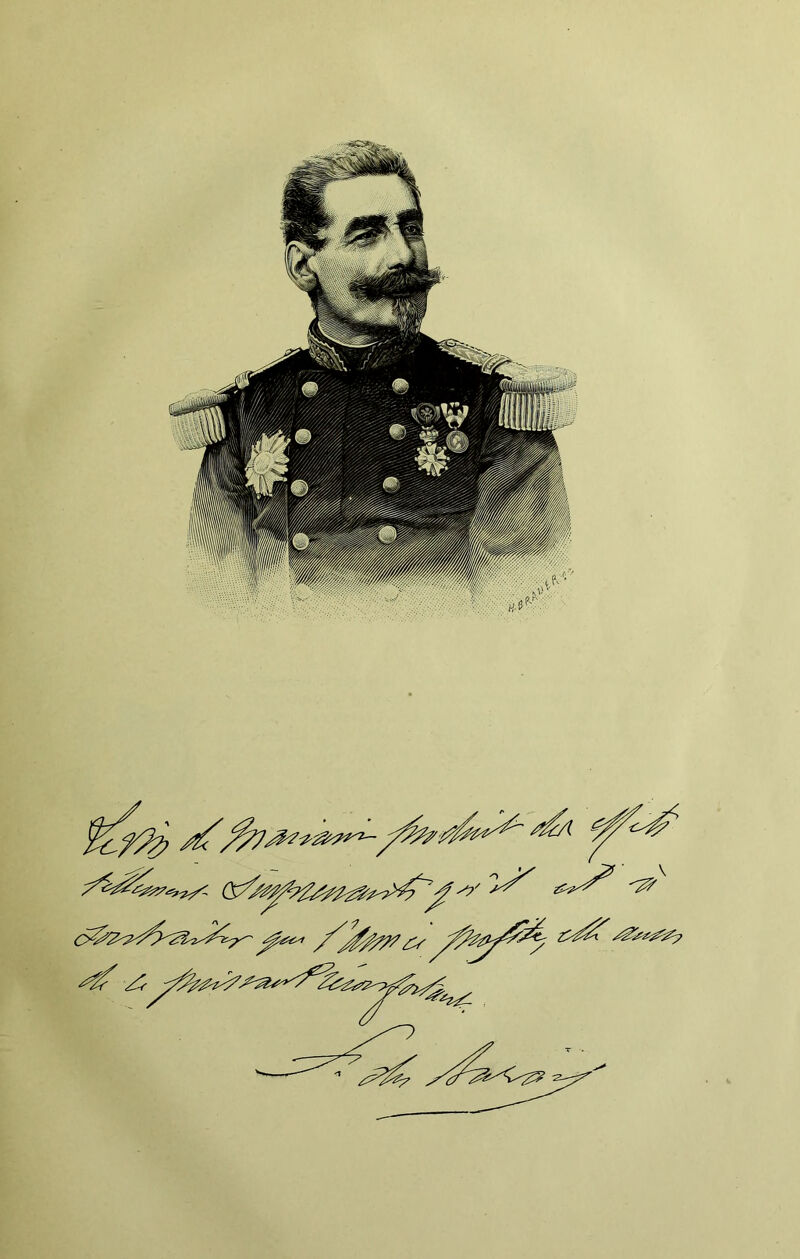 H. BRAUER Sc
Le Vin de Mariani produit des effets
tellement surprenants qu'il est à
souhaiter que l'Armée profite, elle aussi
de ce puissant réconfortant.
du